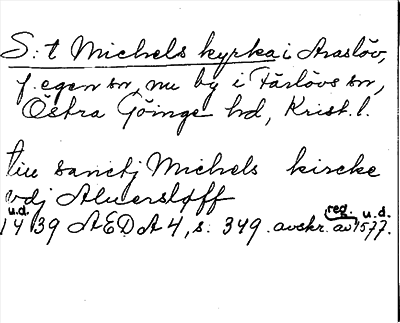 S:t Michels kyrka i Araslöv,
f. egen sn, nu by i Färlövs sn,
Östra Göinge hd, Krist. l.
till sanctj Michels kircke
vdj Aluersløff
u.d. reg. u.d.
1439 AEDA 4, s. 349. avskr. av 1577.